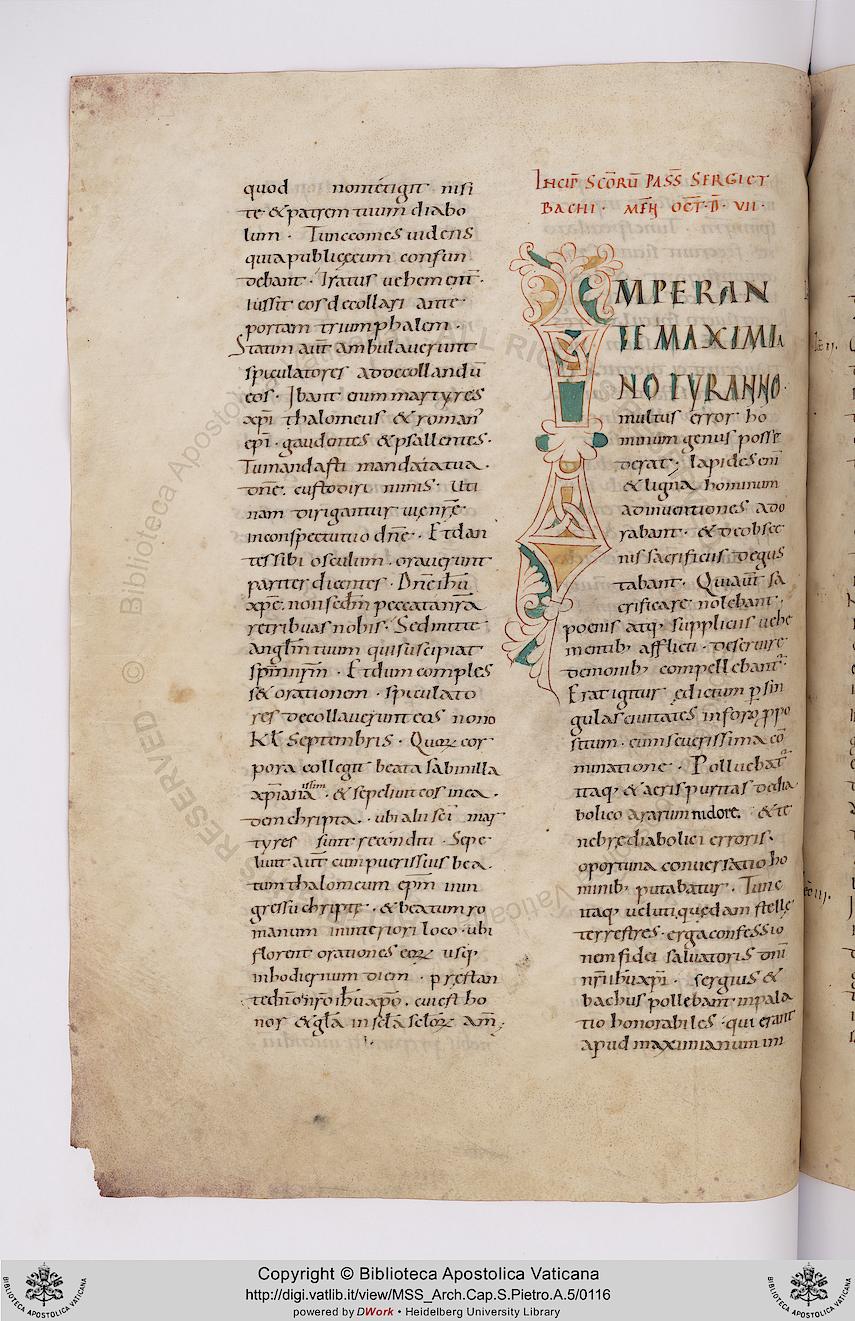 quod nom& tigit nisi
te · & patrem tuum diabo
lum · Tunc comes uidens
quia publice eum confun
debant · Iratus uehement̄ ·
iussit eos decollari ante
portam triumphalem ·
Statim aut̄ ambulauerunt
spiculatores ad decollandū
eos · Ibant cum martyres
xp̄i thalomeus & roman'
ep̄i · gaudentes & psallentes ·
Tu mandasti mandata tua ·
dn̄e · custodiri nimis · Uti
nam dirigantur uię nr̄ę ·
in conspectu tuo dn̄e · Et dan
tes sibi osculum · orauerunt
pariter dicentes · Dn̄e ih̄u
xp̄e · non sedm̄ peccata nr̄a
retribuas nobis · Sed mitte
anglm̄ tuum qui suscipiat
spm̄ nrm̄ · Et dum comples
s& orationem · spiculato
res decollauerunt eos nono
Kl̄ Septembris · Quorꝝ cor
pora collegit beata sabinilla
xp̄ianissim̄ · & sepeliuit eos in ea ·
dem chripta · ubi alii sc̄i mar
tyres sunt reconditi · Sepe
liuit aut̄ eum puerissius bea
tum thalomeum epm̄ in in
gressu chriptę · & beatum ro
manum in interiori loco · ubi
florent orationes eorꝝ usq;
in hodiernum diem · pręstan
te dn̄o nr̄o ih̄u xp̄o · cui est ho
nor & glā in sclā sclorꝝ am̄ ·
Incip̄ sc̄orū pass̄ sergi et
bachi · mēn oct̄ · d̄ · vii ·
IMPERAN
TE MAXIMIA
NO TYRANNO ·
multus error ho
minum genus posse
derat; lapides eni
& ligna hominum
adinuentiones ado
rabant · & de obsce
nis sacrificiis degus
tabant · Qui aut̄ sa
crificare nolebant ·
poenis atq; suppliciis uehe
mentib; afflicti · deseruire
demonib; compellebant̄ ·
Erat igitur edictum p sin
gulas ciuitates in foro ppo
situm · cum seuerissima cō
minatione · Polluebat̄
itaq; & aeris puritas de dia
bolico ararum nidore · & te
nebrę diabolici erroris ·
oportuna conuersatio ho
minib; putabatur · Tunc
itaq; ueluti quędam stellę
terrestres · erga confessio
nem fidei saluatoris dn̄i
nr̄i ih̄u xp̄i · sergius &
bachus pollebant in pala
tio honorabiles · qui erant
apud maximianum im
Copyright © Biblioteca Apostolica Vaticana
http://digi.vatlib.it/view/MSS_Arch.Cap.S.Pietro.A.5/0116
powered by DWork • Heidelberg University Library